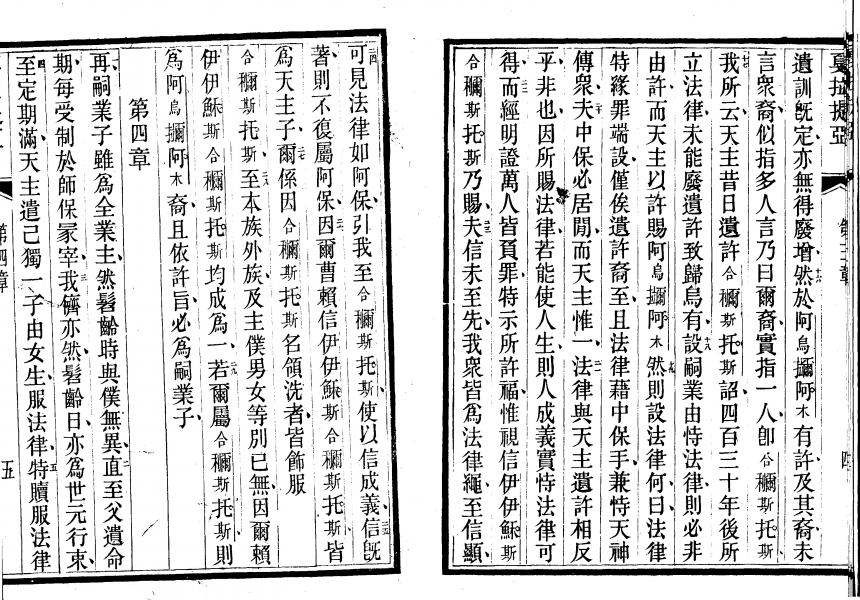 戛拉提亞 第三章 四
遺訓旣定亦無得廢增然於阿烏擟阿木有許及其裔未
言衆裔似指多人言乃曰爾裔實指一人卽合穪斯托斯
我所云天主昔日遺許合穪斯托斯詔四百三十年後所
立法律未能廢遺許致歸烏有設嗣業由恃法律則必非
由許而天主以許賜阿烏擟阿木然則設法律何曰法律
特緣罪端設僅俟遺許裔至且法律藉中保手兼恃天神
傳衆夫中保必居間而天主惟一法律與天主遺許相反
乎非也因所賜法律若能使人生則人成義實恃法律可
得而經明證萬人皆負罪特示所許福惟視信伊伊穌斯
合穪斯托斯乃賜夫信未至先我衆皆爲法律繩至信顯
可見法律如阿保引我至合穪斯托斯使以信成義信旣
著則不復屬阿保因爾曹賴信伊伊穌斯合穪斯托斯皆
爲天主子爾係因合穪斯托斯名領洗者皆飾服
合穪斯托斯至本族外族及主僕男女等別已無因爾賴
伊伊穌斯合穪斯托斯均成爲一若爾屬合穪斯托斯則
爲阿烏擟阿木裔且依許旨必爲嗣業子
第四章
再嗣業子雖爲全業主然髫齡時與僕無異直至父遺命
期每受制於師保冢宰我儕亦然髫齡日亦爲世元行束
至定期滿天主遣己獨一子由女生服法律特贖服法律
第四章 五